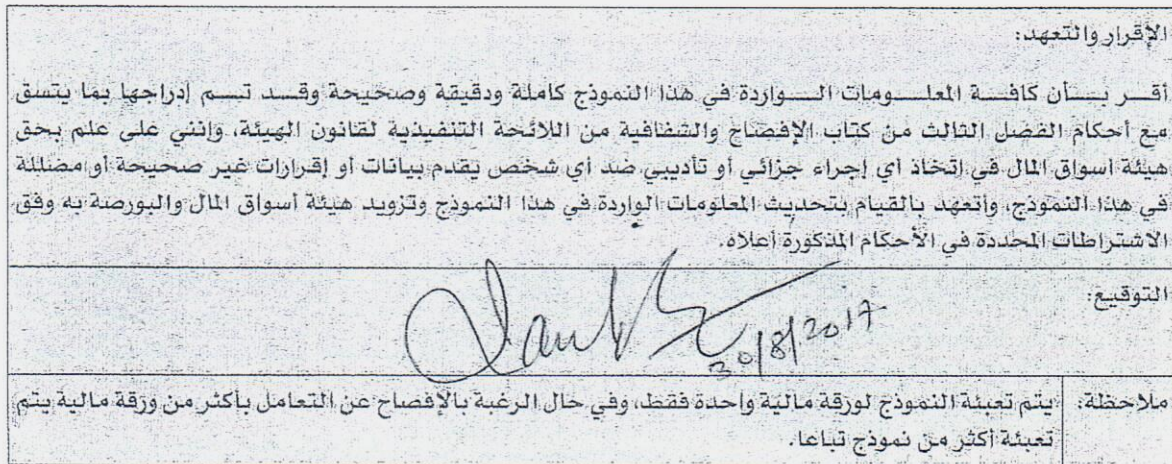 الإقرار والتعهد:
أقـــر بـــأن كافـــة المعلـــومات الـــواردة في هذا النموذج كاملة ودقيقة وصحيحة وقـــد تـــم إدراجها بما يتسق
مع أحكام الفصل الثالث من كتاب الإفصاح والشفافية من اللائحة التنفيذية لقانون الهيئة، وإنني على علم بحق
هيئة أسواق المال في إتخاذ أي إجراء جزائي أو تأديبي ضد أي شخص يقدم بيانات أو إقرارات غير صحيحة أو مضللة
في هذا النموذج، وأتعهد بالقيام بتحديث المعلومات الواردة في هذا النموذج وتزويد هيئة أسواق المال والبورصة به وفق
الاشتراطات المحددة في الأحكام المذكورة أعلاه.
التوقيع:
30/8/2017
ملاحظة: يتم تعبئة النموذج لورقة مالية واحدة فقط، وفي حال الرغبة بالإفصاح عن التعامل بأكثر من ورقة مالية يتم
تعبئة أكثر من نموذج تباعا.